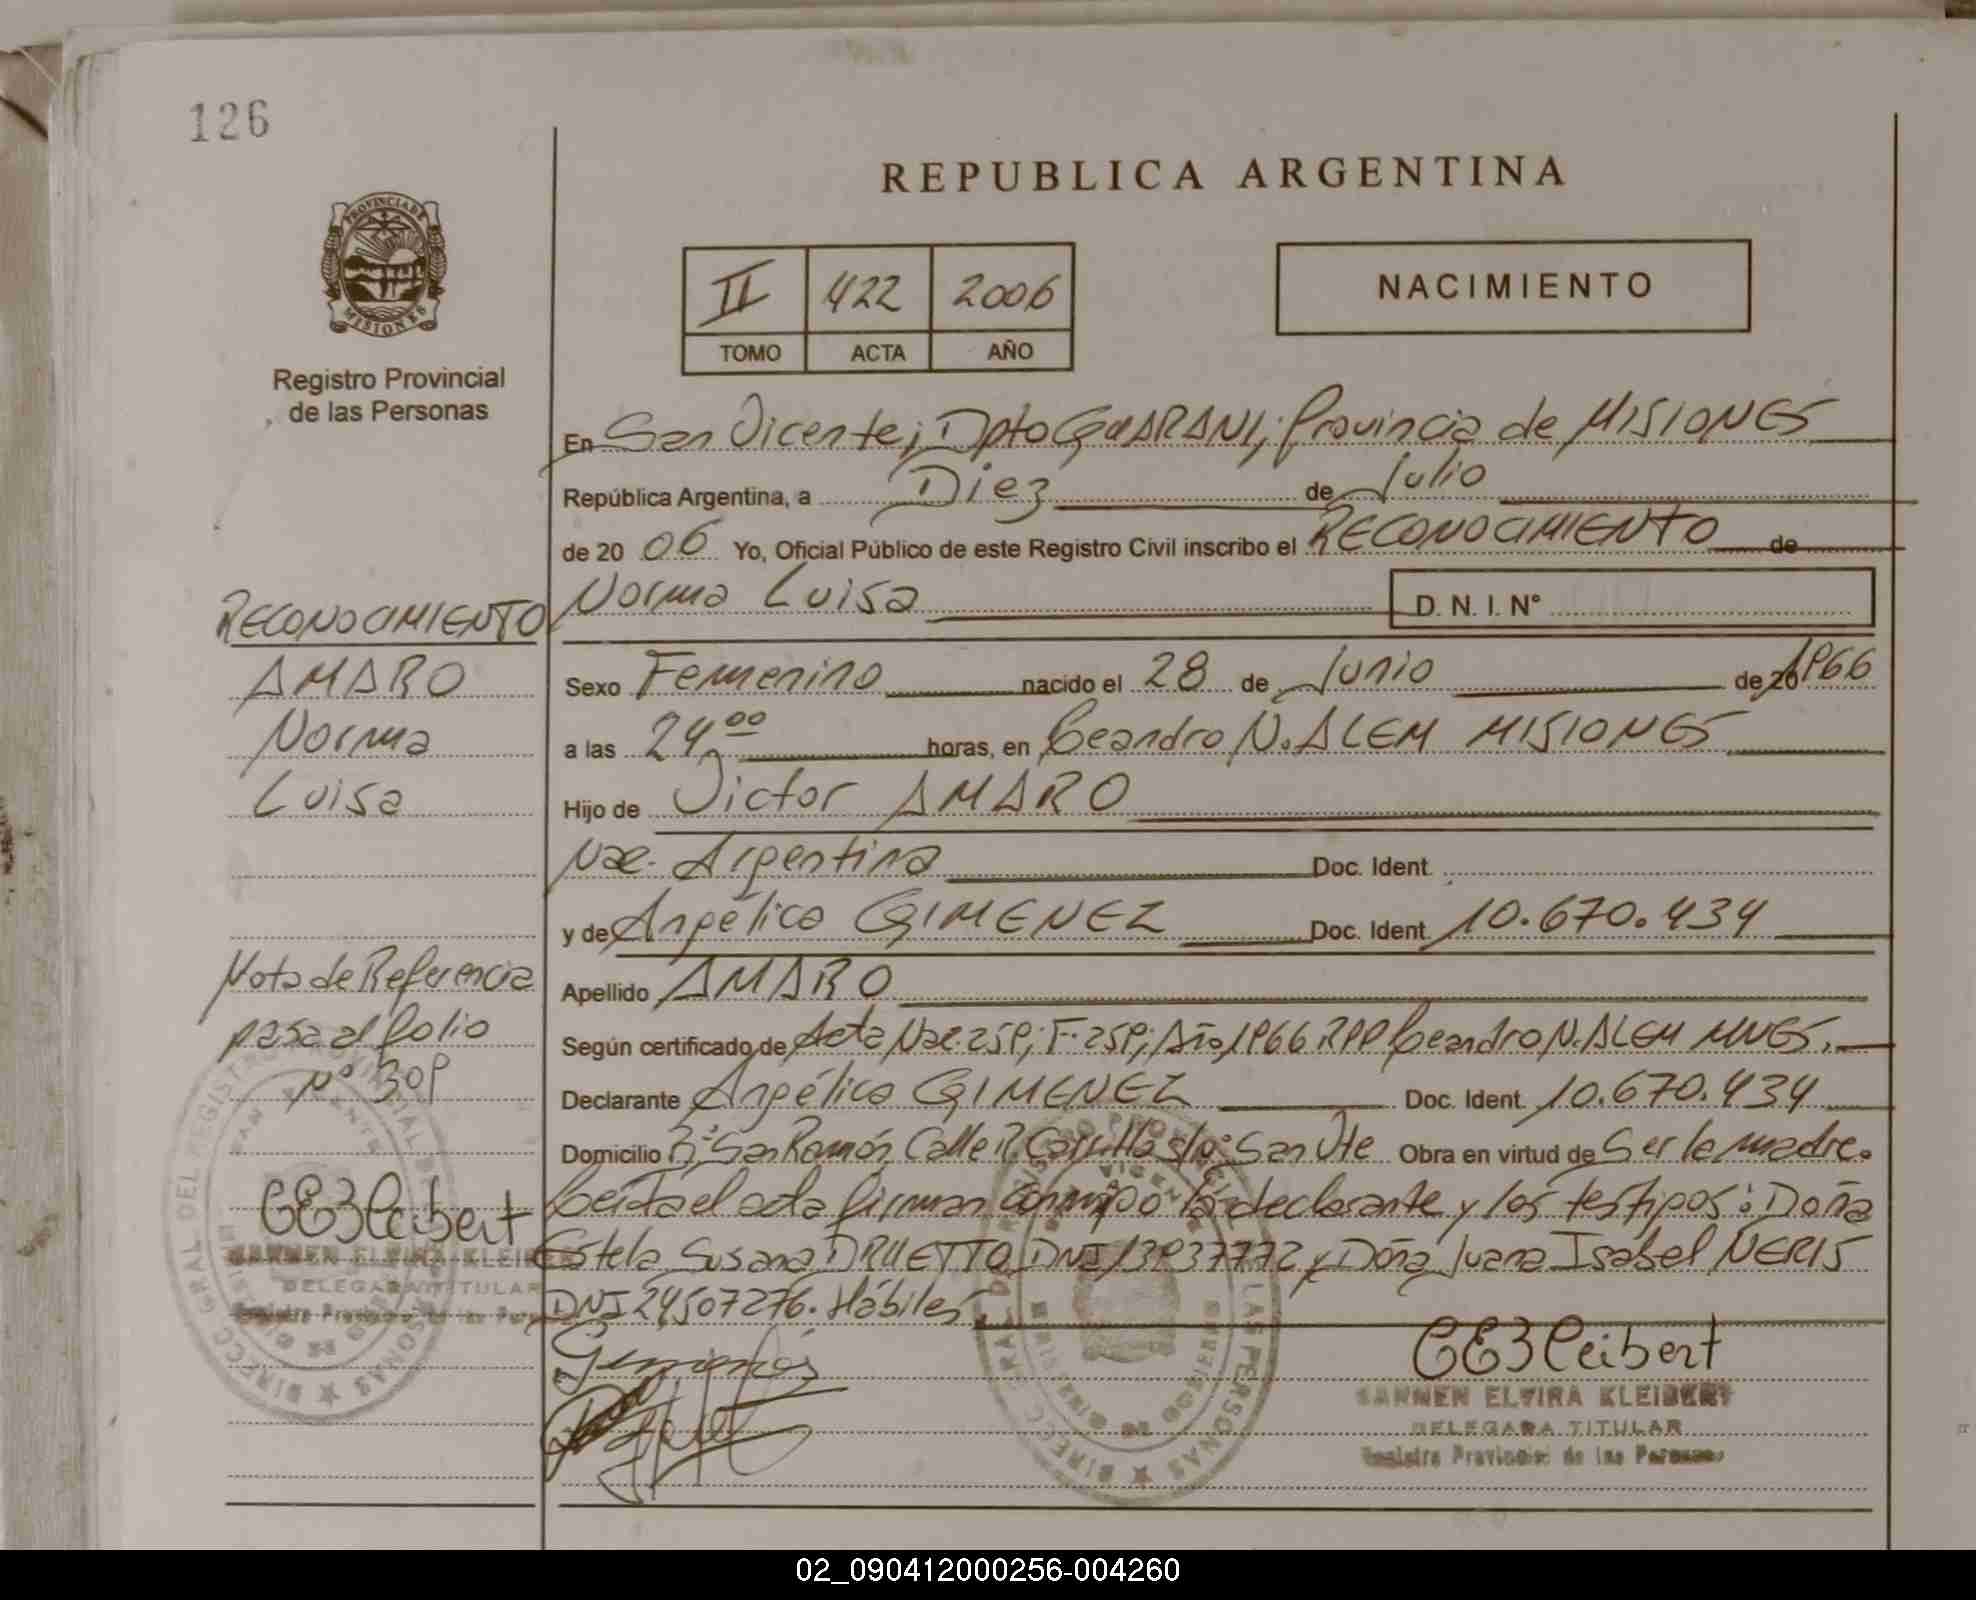 126
REPUBLICA ARGENTINA
PROVINCIA DE MISIONES
Registro Provincial
de las Personas
II 422 2006
TOMO ACTA AÑO
NACIMIENTO
En San Vicente; Dpto GUARANI; Provincia de MISIONES
República Argentina, a Diez de Julio
de 2006 Yo, Oficial Público de este Registro Civil inscribo el RECONOCIMIENTO de
Norma Luisa D. N. I. N°
Sexo Femenino nacido el 28 de Junio de 20 1966
a las 24 00 horas, en Leandro N. ALEM MISIONES
Hijo de Victor AMARO
Nac. Argentina Doc. Ident.
y de Angélica GIMENEZ Doc. Ident. 10.670.434
Apellido AMARO
Según certificado de Acta Nac. 259; F. 259; Año 1966 RPP Leandro N. ALEM MNES.
Declarante Angélica GIMENEZ Doc. Ident. 10.670.434
Domicilio B° San Ramón Calle R. Carrillo s/n° San Vte Obra en virtud de Ser la madre.
Leida el acta firman conmigo la declarante y los testigos: Doña
Estela Susana DRUETTO DNI 13937772 y Doña Juana Isabel NERIS
DNI 24507276. Hábiles.
CEKleibert
CARMEN ELVIRA KLEIBERT
DELEGADA TITULAR
Registro Provincial de las Personas
RECONOCIMIENTO
AMARO
Norma
Luisa
Nota de Referencia
pasa al folio
N° 309
CEKleibert
CARMEN ELVIRA KLEIBERT
DELEGADA TITULAR
Registro Provincial de las Personas
02_090412000256-004260